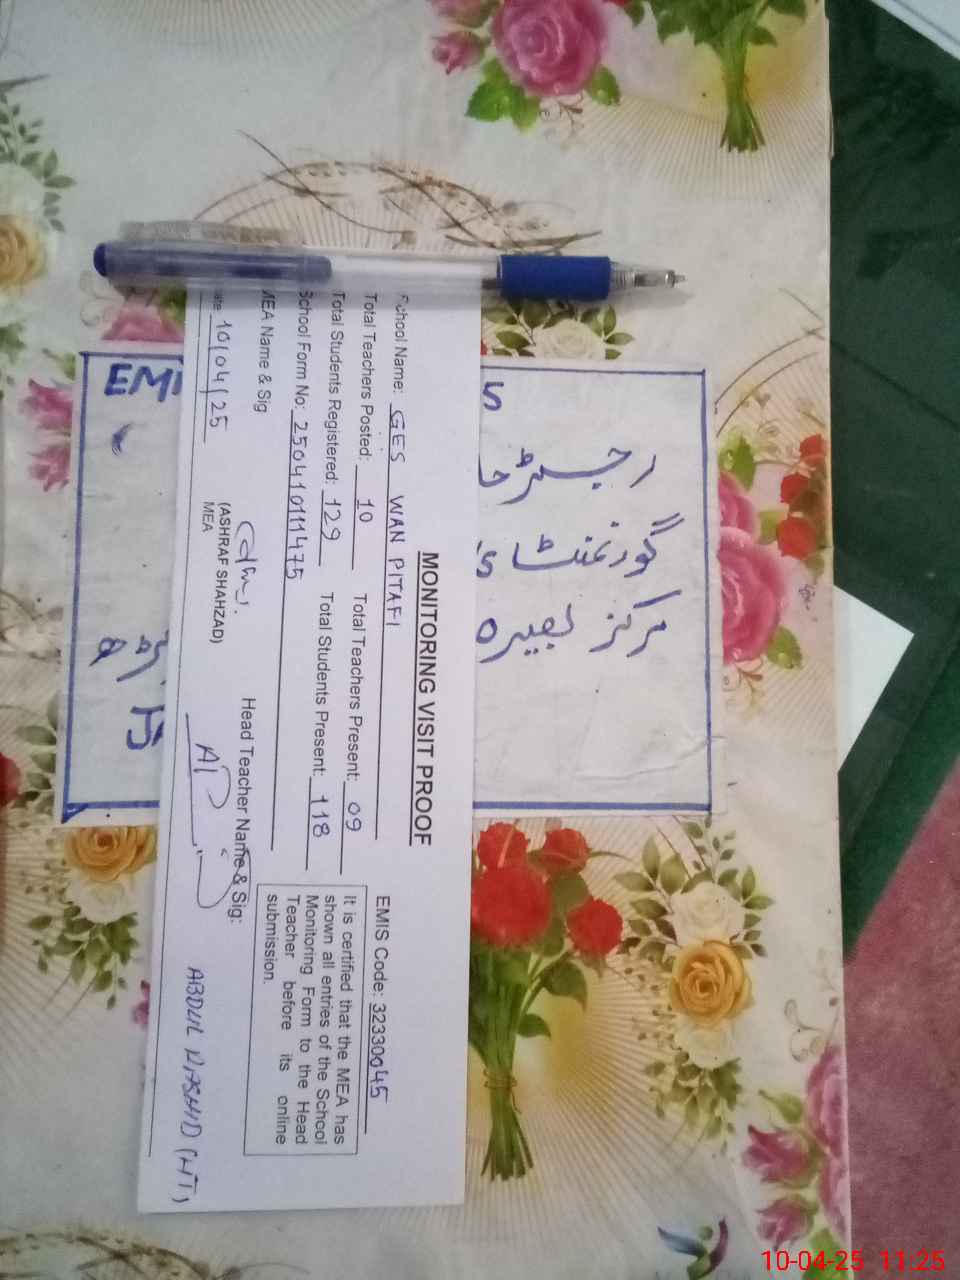 MONITORING VISIT PROOF
School Name: GES WAN PITAFI
EMIS Code: 32330045
Total Teachers Posted: 10 Total Teachers Present: 09
Total Students Registered: 129 Total Students Present: 118
School Form No: 250410111475
It is certified that the MEA has
shown all entries of the School
Monitoring Form to the Head
Teacher before its online
submission.
MEA Name & Sig
Head Teacher Name & Sig:
(ASHRAF SHAHZAD)
MEA
ate 10/04/25
ABDUL RASHID (HT)
EMI
گورنمنٹ
مرکز بصیرہ
10-04-25 11:25